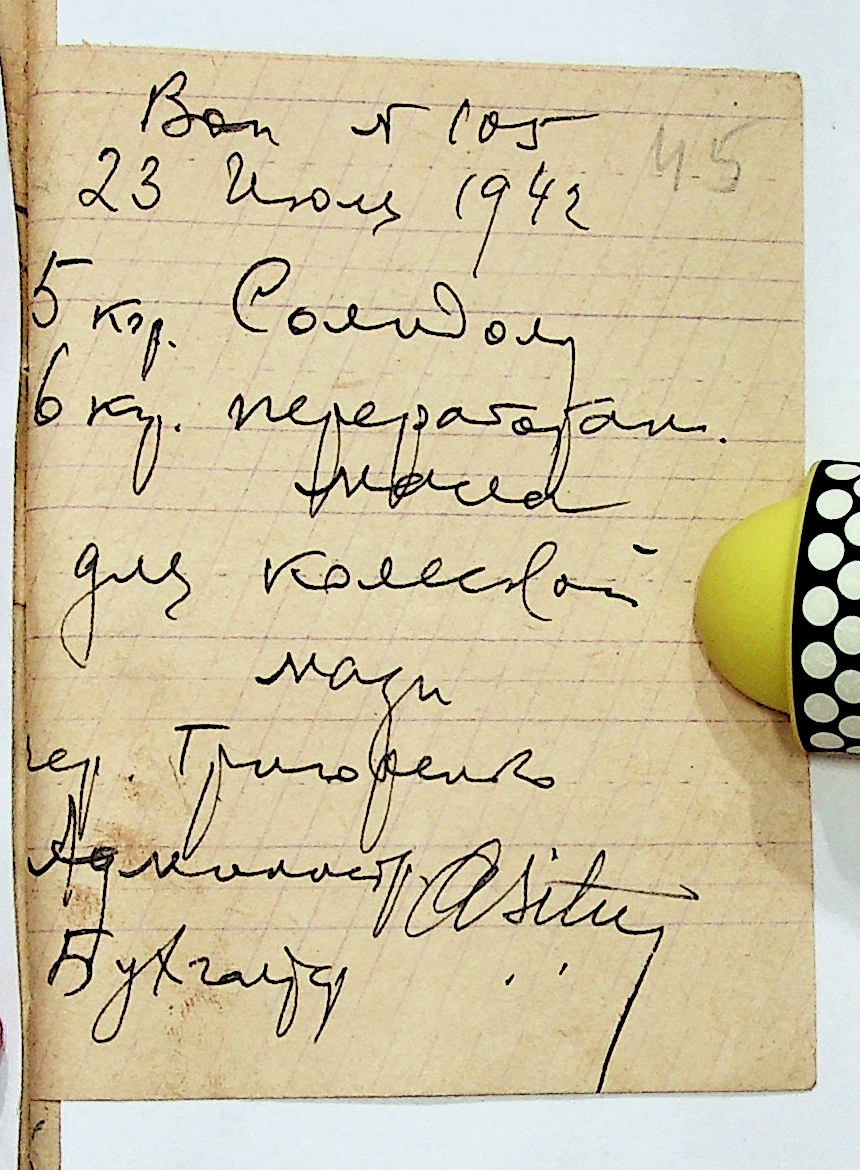 Бон № 105
45
23 Июля 1942
5 кгр. Солидолу
6 кгр. переработан.
масла
для колесной
мази
чер. Григоренко
Администр.
Бухгалтер